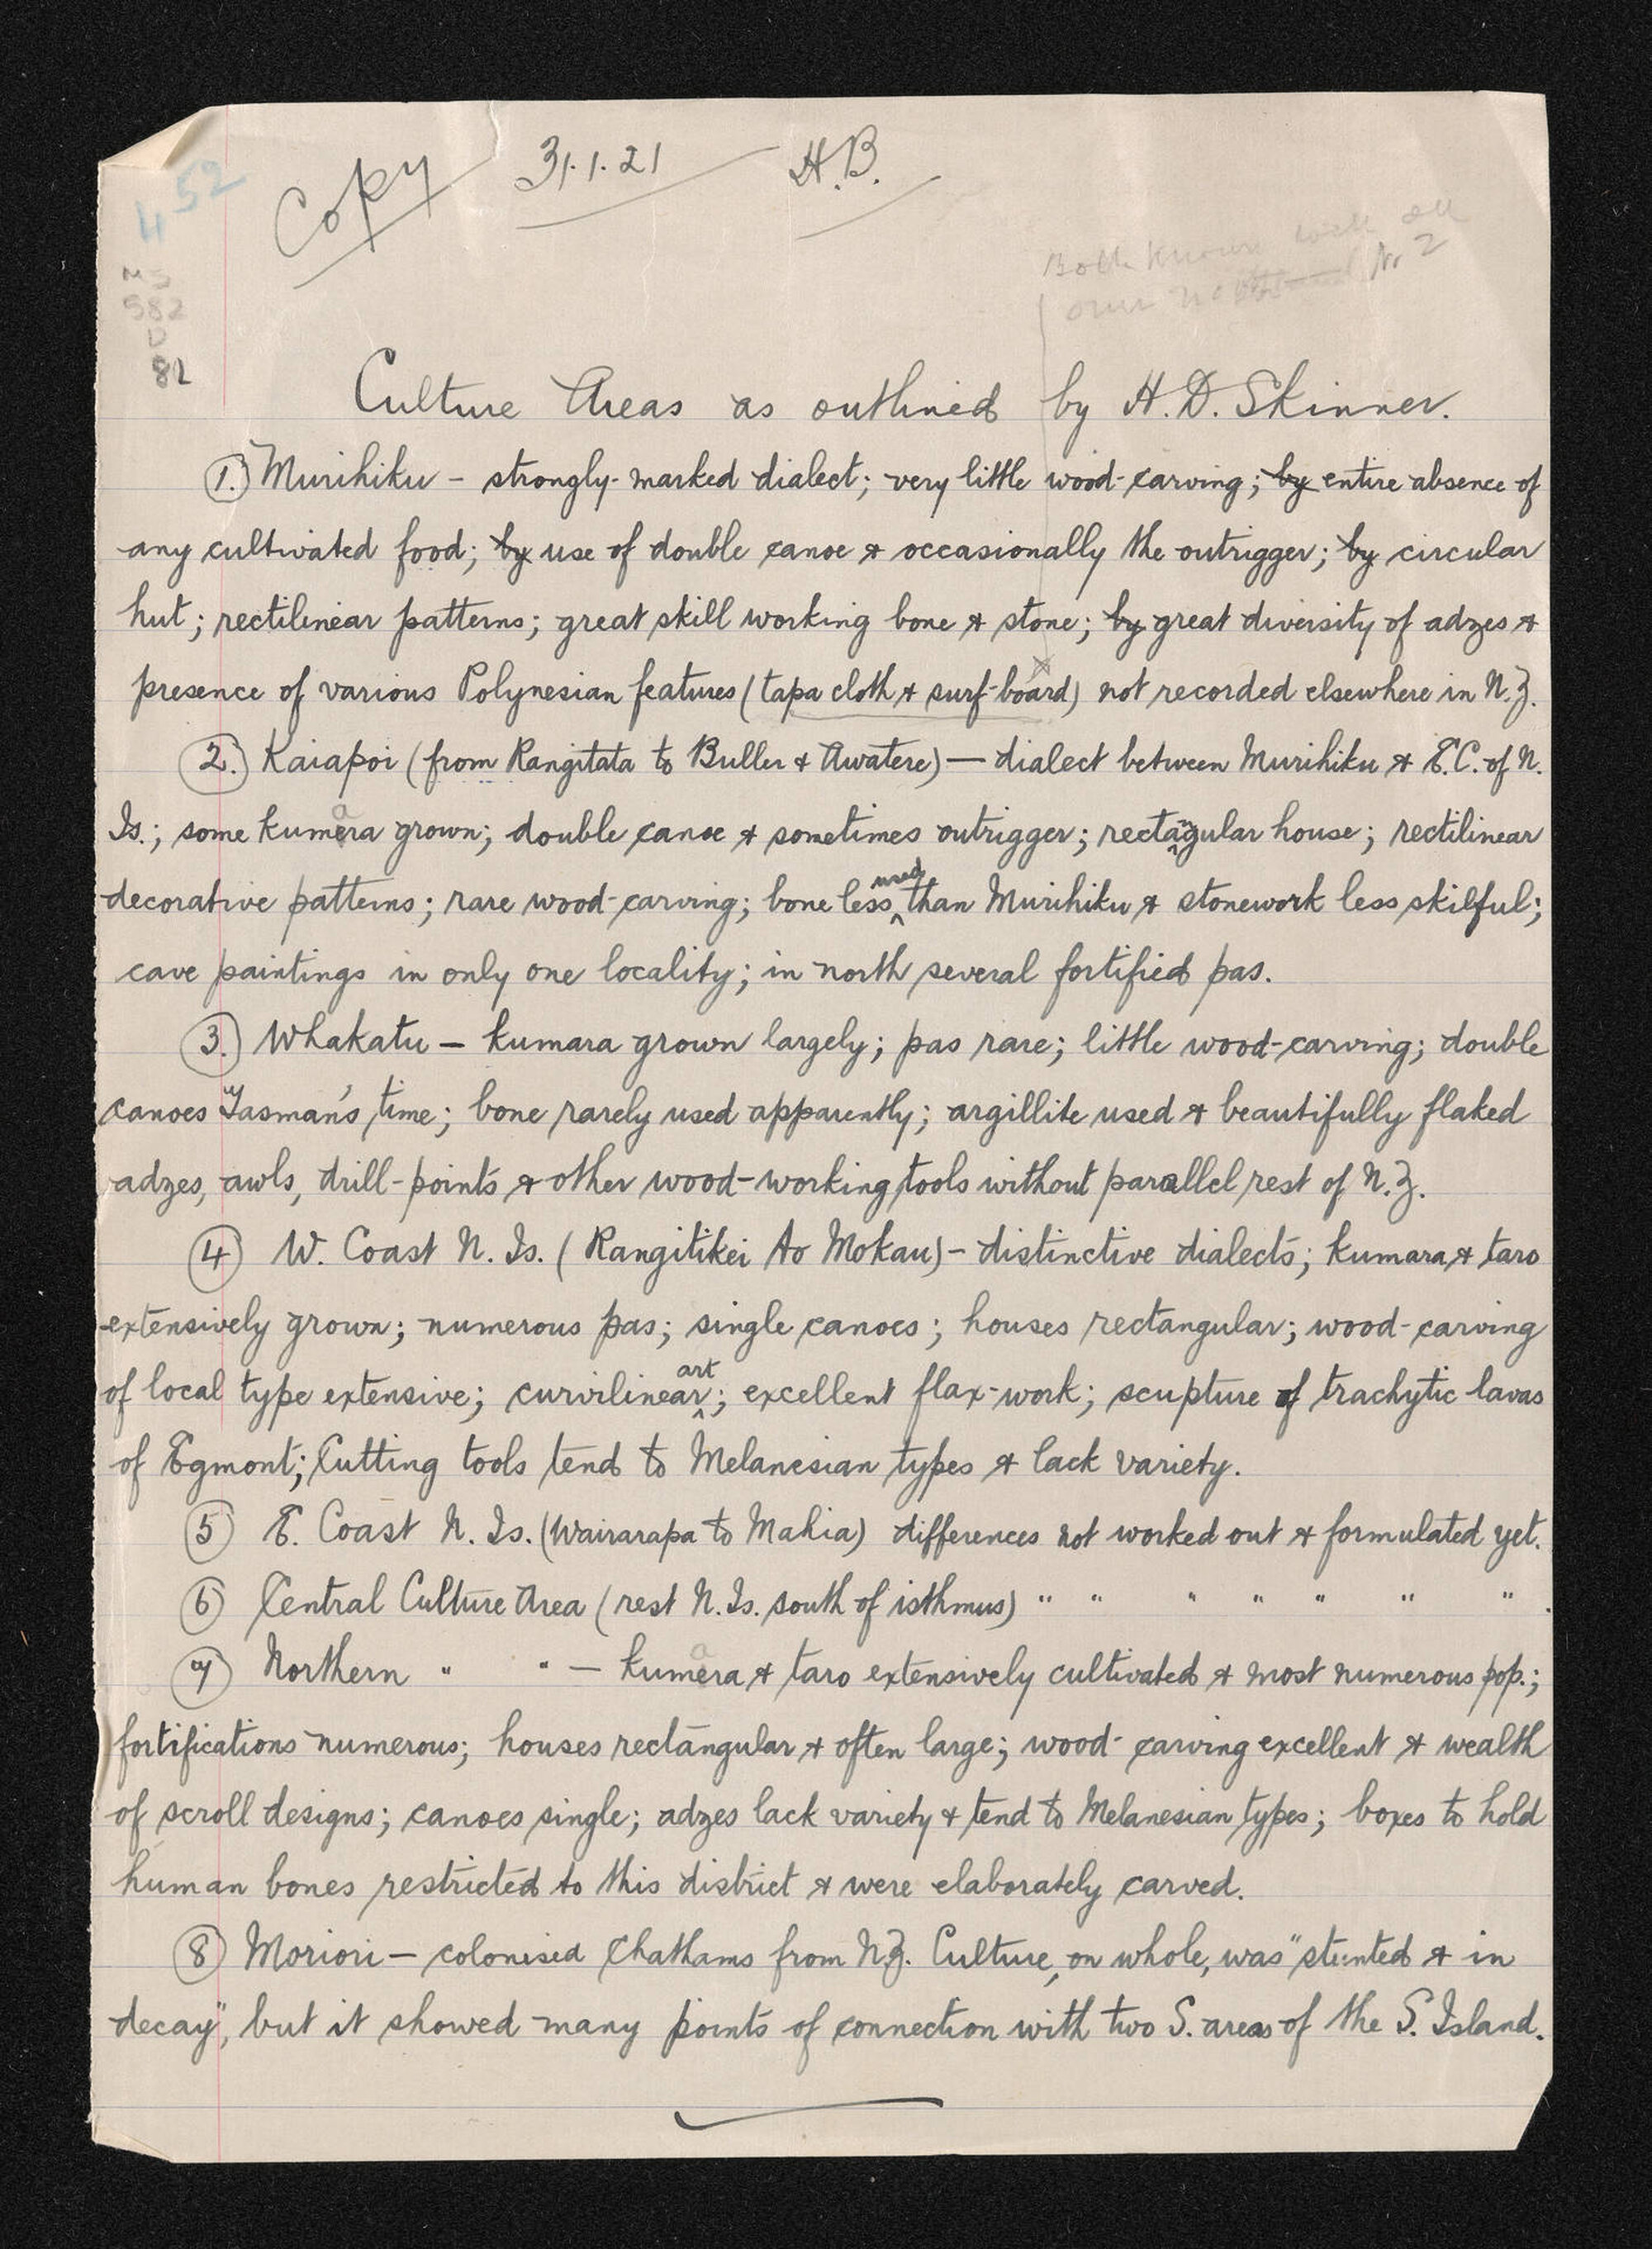 52
4
Copy 31.1.21 H.B.
MS
582
D
82
Both known
over
2
Culture Areas as outlined by H.D. Skinner.
1. Murihiku – strongly-marked dialect; very little wood-carving; by entire absence of
any cultivated food; by use of double canoe & occasionally the outrigger; by circular
hut; rectilinear patterns; great skill working bone & stone; by great diversity of adzes &
presence of various Polynesian features (tapa cloth & surf-board) not recorded elsewhere in N.Z.
2. Kaiapoi (from Rangitata to Buller & Awatere) — dialect between Murihiku & E.C. of N.
Is.; some kumara grown; double canoe & sometimes outrigger; rectangular house; rectilinear
decorative patterns; rare wood-carving; bone less used than Murihiku & stonework less skilful;
cave paintings in only one locality; in north several fortified pas.
3. Whakatu – kumara grown largely; pas rare; little wood-carving; double
canoes Tasman's time; bone rarely used apparently; argillite used & beautifully flaked
adzes, awls, drill-points & other wood-working tools without parallel rest of N.Z.
4 W. Coast N. Is. (Rangitikei to Mokau) – distinctive dialects; kumara & taro
extensively grown; numerous pas; single canoes; houses rectangular; wood-carving
of local type extensive; curvilinear art; excellent flax-work; scupture of trachytic lavas
of Egmont; Cutting tools tend to Melanesian types & lack variety.
5 E. Coast N. Is. (Wairarapa to Mahia) differences not worked out & formulated yet.
6 Central Culture Area (rest N. Is. south of isthmus) " " " " " " " .
7 Northern " " — kumara & taro extensively cultivated & most numerous pop.;
fortifications numerous; houses rectangular & often large; wood-carving excellent & wealth
of scroll designs; canoes single; adzes lack variety & tend to Melanesian types; boxes to hold
human bones restricted to this district & were elaborately carved.
8 Moriori — colonised Chathams from N.Z. Culture, on whole, was "stunted & in
decay", but it showed many points of connection with two S. areas of the S. Island.